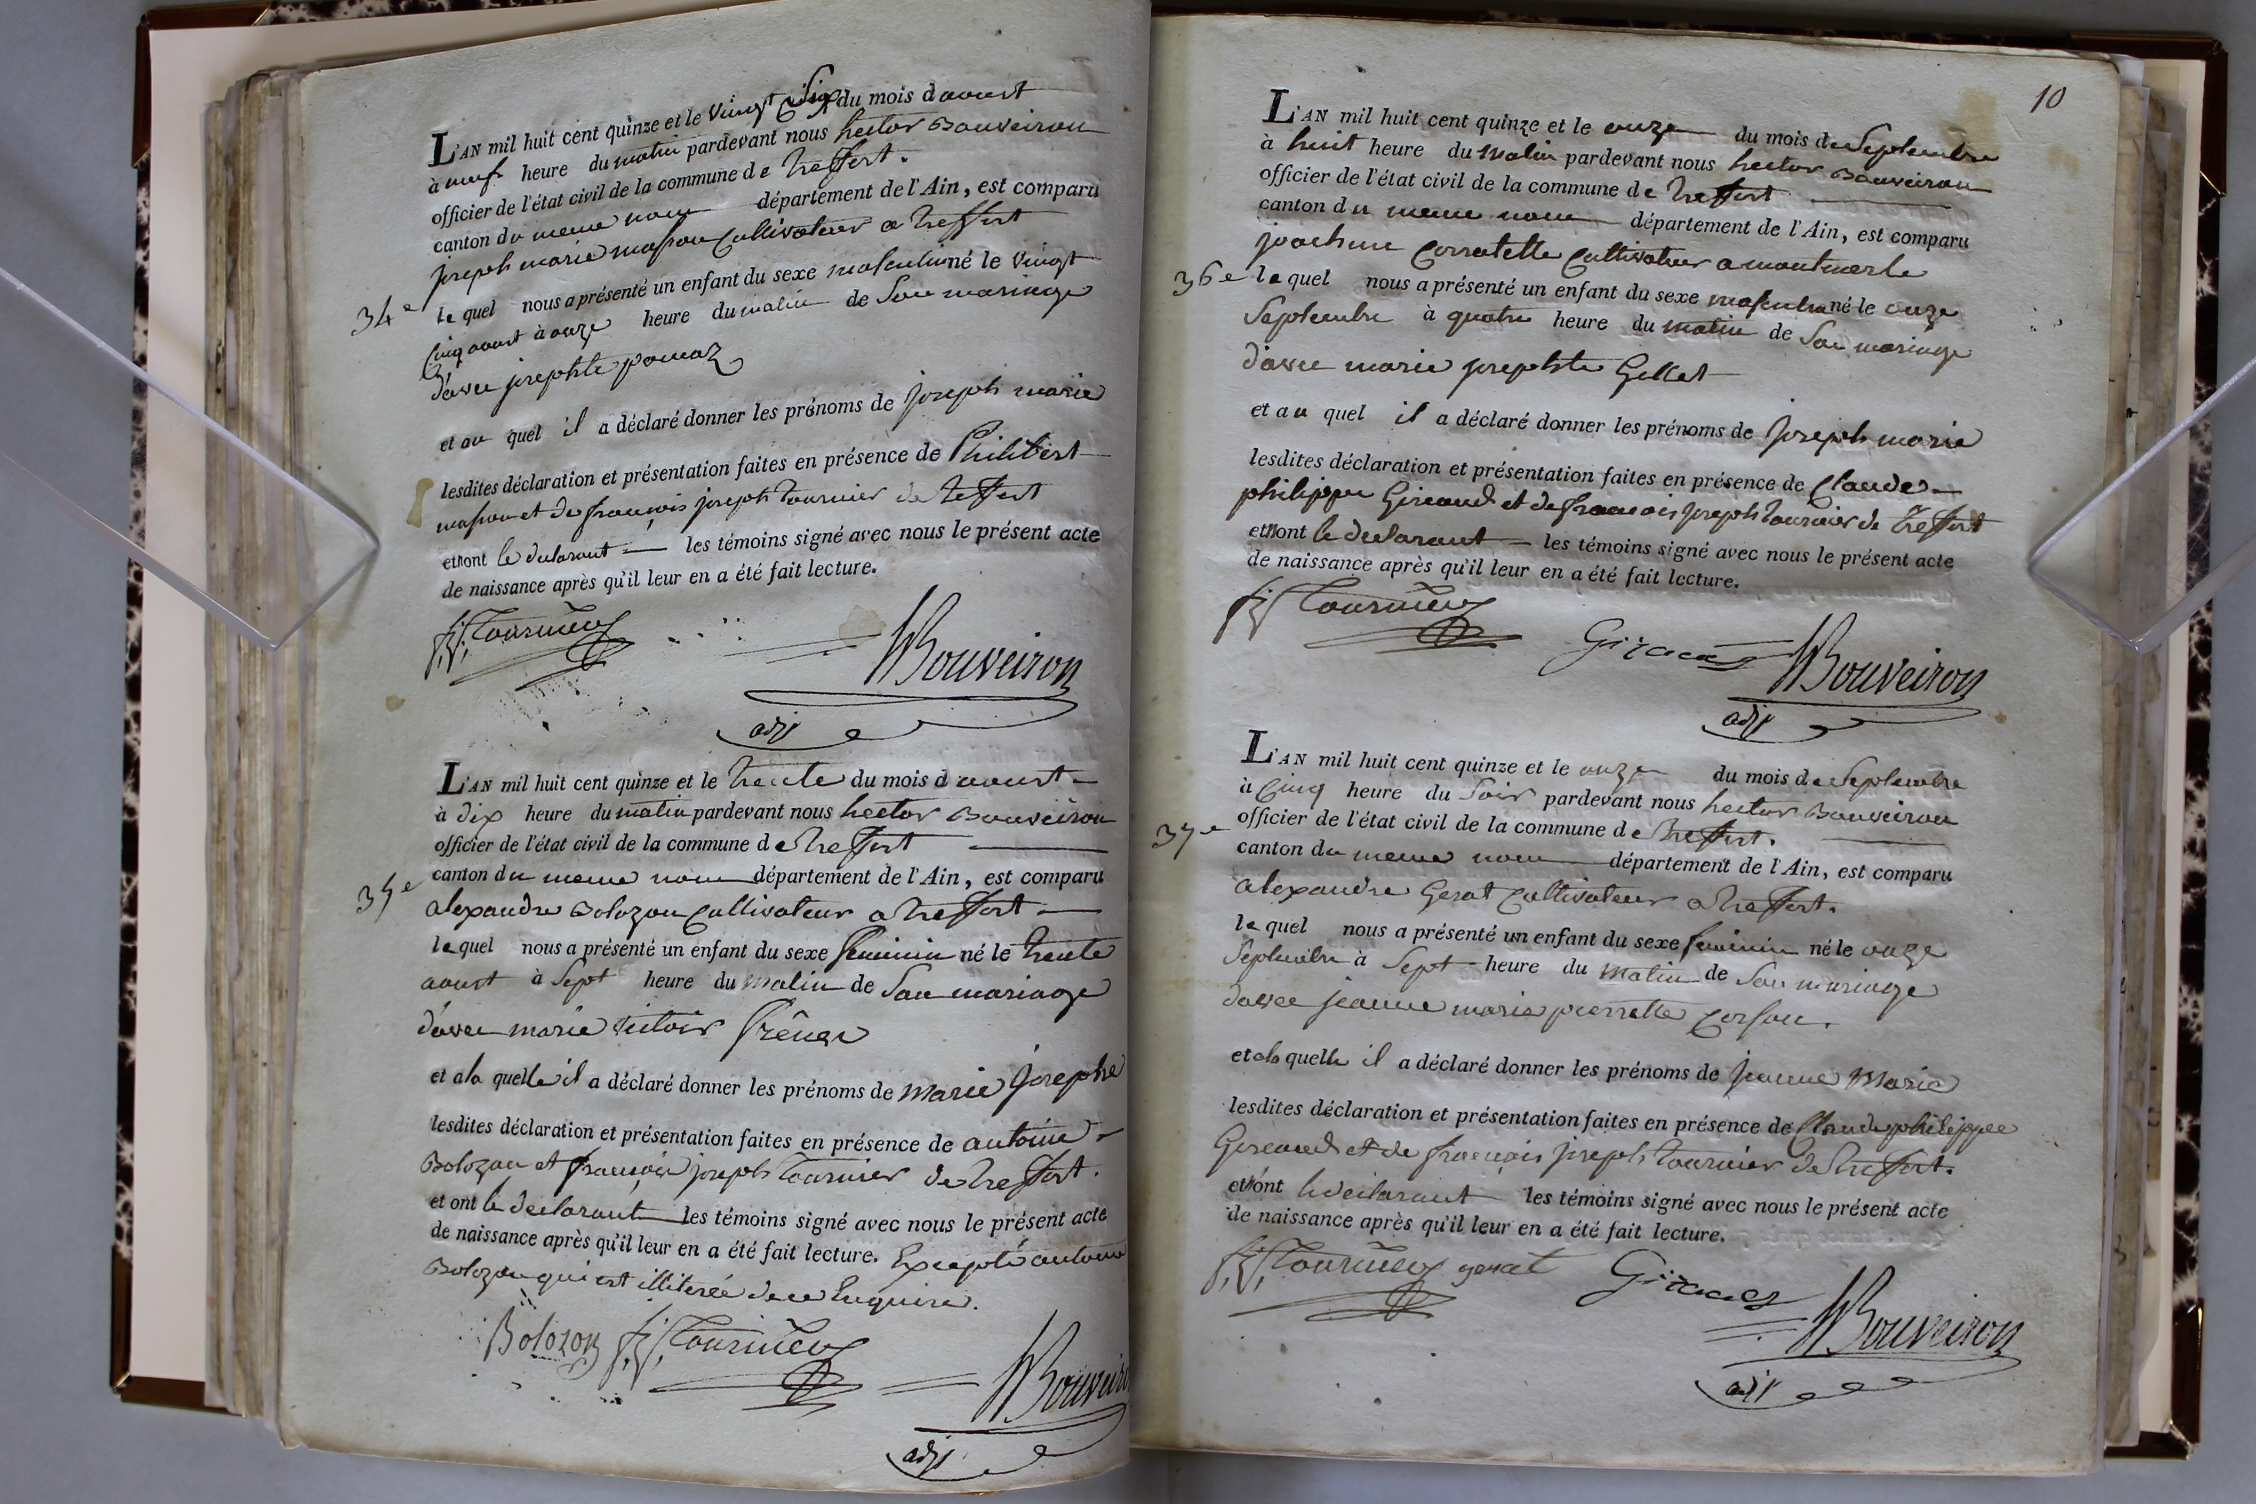 L'AN mil huit cent quinze et le vingt six du mois d aoust
à neuf heure du matin pardevant nous hector Bouveiron
officier de l'état civil de la commune de treffort.
canton du meme nom département de l'Ain, est comparu
joseph marie masson Cultivateur a treffort
34e le quel nous a présenté un enfant du sexe masculin né le vingt
Cinq aoust à onze heure du matin de Son mariage
d'avec josephte
et au quel il a déclaré donner les prénoms de joseph marie
lesdites déclaration et présentation faites en présence de Philibert
masson et de françois joseph tournier de treffort
et ont le declarant les témoins signé avec nous le présent acte
de naissance après qu'il leur en a été fait lecture.
f. j. Tournier
HBouveiron
adj
L'AN mil huit cent quinze et le trente du mois d aoust
à dix heure du matin pardevant nous hector Bouveiron
officier de l'état civil de la commune de treffort
canton du meme nom département de l'Ain, est comparu
35e alexandre Bolozon Cultivateur a treffort
le quel nous a présenté un enfant du sexe feminin né le trente
aoust à Sept heure du matin de Son mariage
d'avec marie victoir
et a la quelle il a déclaré donner les prénoms de marie josephe
lesdites déclaration et présentation faites en présence de antoine
Bolozon et françois joseph tournier de treffort.
et ont le declarant les témoins signé avec nous le présent acte
de naissance après qu'il leur en a été fait lecture. Excepté antoine
Bolozon qui est illiterée de ce Enquire.
Bolozon f. j. Tournier
HBouveiron
adj
10
L'AN mil huit cent quinze et le onze du mois de Septembre
à huit heure du matin pardevant nous hector Bouveiron
officier de l'état civil de la commune de treffort
canton du meme nom département de l'Ain, est comparu
joachim Corratelle Cultivateur a montmerle
36e le quel nous a présenté un enfant du sexe masculin né le onze
Septembre à quatre heure du matin de Son mariage
d'avec marie josephte Gillet
et au quel il a déclaré donner les prénoms de joseph marie
lesdites déclaration et présentation faites en présence de Claude
philippe Gireaud et de françois joseph tournier de treffort
et ont le declarant les témoins signé avec nous le présent acte
de naissance après qu'il leur en a été fait lecture.
f. j. Tournier
HBouveiron
adj
L'AN mil huit cent quinze et le onze du mois de Septembre
à Cinq heure du Soir pardevant nous hector Bouveiron
37e officier de l'état civil de la commune de treffort.
canton du meme nom département de l'Ain, est comparu
alexandre Gerat Cultivateur a treffort.
le quel nous a présenté un enfant du sexe feminin né le onze
Septembre à Sept heure du matin de Son mariage
d'avec jeanne marie pierrette
et a la quelle il a déclaré donner les prénoms de jeanne Marie
lesdites déclaration et présentation faites en présence de Claude philippe
Gireaud et de françois joseph tournier de treffort.
et ont le declarant les témoins signé avec nous le présent acte
de naissance après qu'il leur en a été fait lecture.
f. j. Tournier gerat
HBouveiron
adj